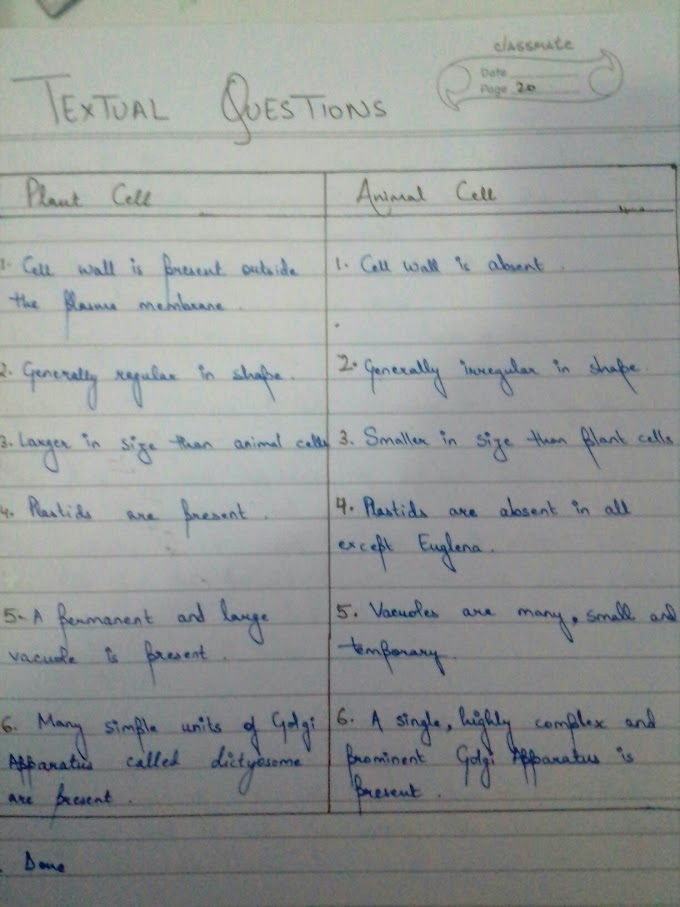 classmate
Date
Page 20
TEXTUAL QUESTIONS
Plant Cell
Animal Cell
1. Cell wall is present outside
the plasma membrane.
1. Cell wall is absent.
2. Generally regular in shape.
2. Generally irregular in shape.
3. Larger in size than animal cells
3. Smaller in size than plant cells
4. Plastids are present.
4. Plastids are absent in all
except Euglena.
5. A permanent and large
vacuole is present.
5. Vacuoles are many, small and
temporary.
6. Many simple units of Golgi
Apparatus called dictyosome
are present.
6. A single, highly complex and
prominent Golgi Apparatus is
present.
. Done